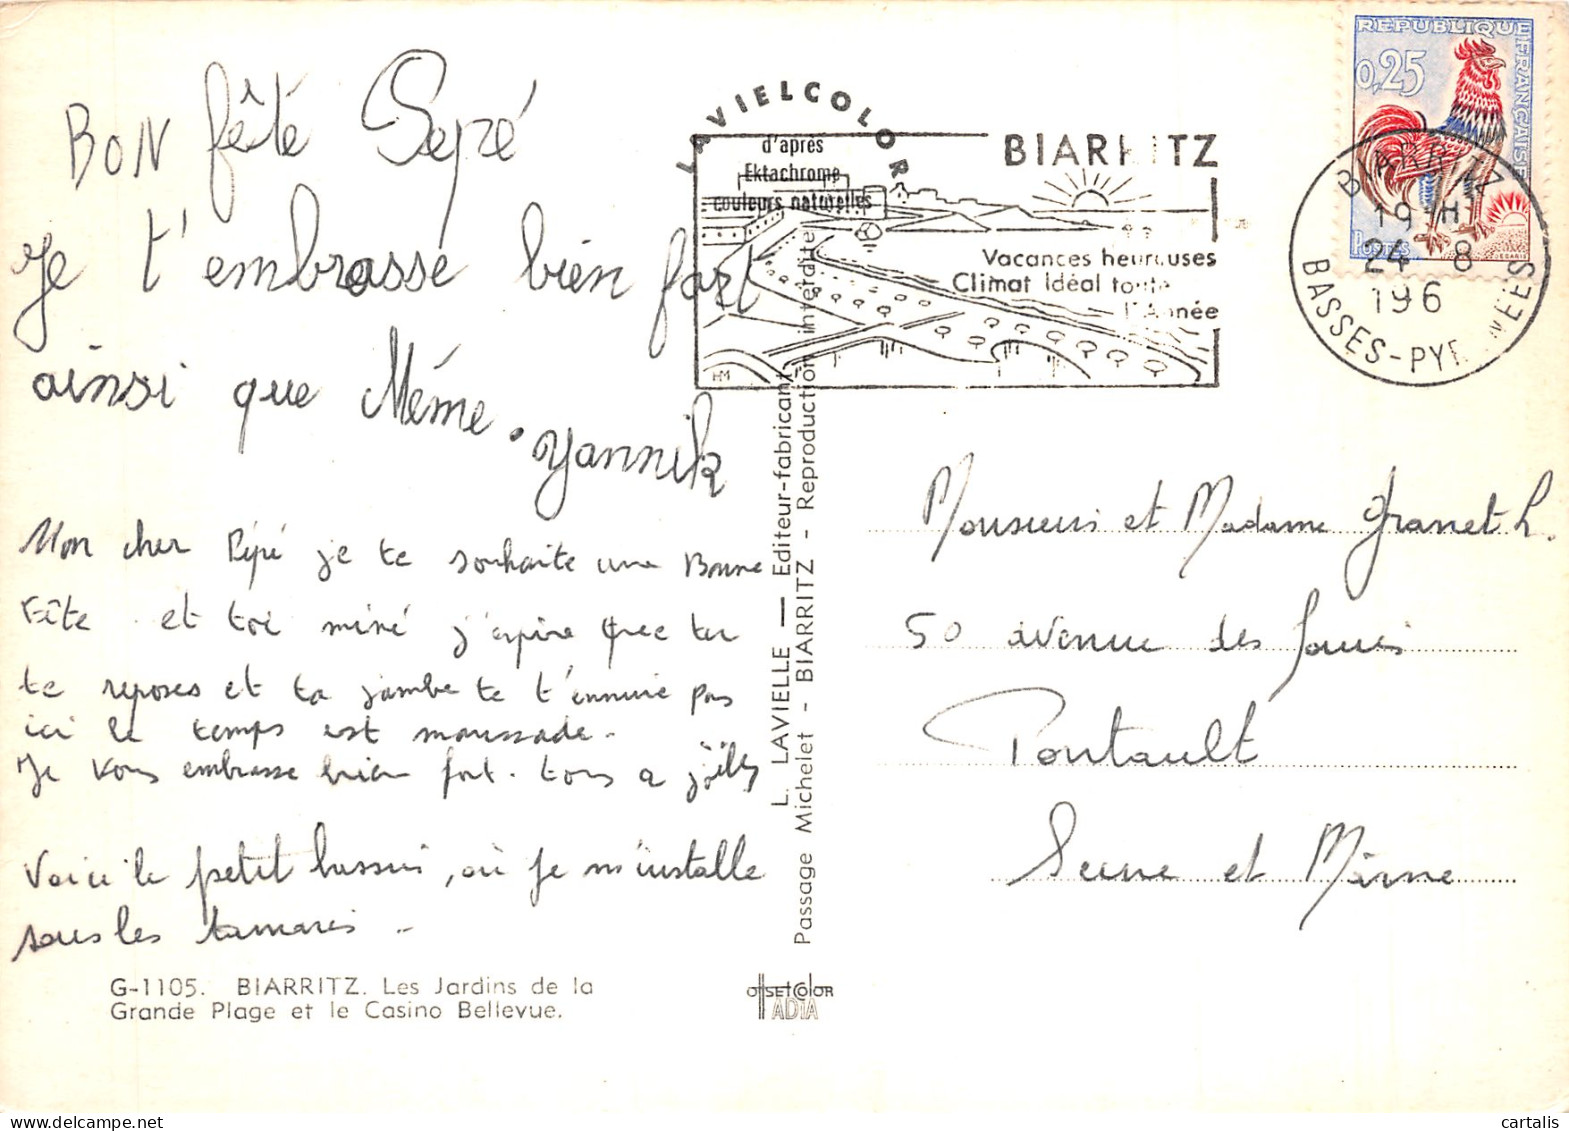 BON fête Pépé
Je t'embrasse bien fort
ainsi que Mémé. Yannik
Mon cher Pépé je te souhaite une Bonne
Fête et toi mémé j'espère que tu
te reposes et ta jambe te t'ennuie pas
ici le temps est maussade.
Je vous embrasse bien fort. tous a
Voici le petit bassin, où je m'installe
sous les tamaris.
G-1105. BIARRITZ. Les Jardins de la
Grande Plage et le Casino Bellevue.
LAVIELCOLOR
d'après
Ektachrome
couleurs naturelles
L. LAVIELLE — Editeur-fabricant
Passage Michelet - BIARRITZ - Reproduction interdite
OFFSETCOLOR
ADIA
BIARRITZ
Vacances heureuses
Climat Idéal toute
l'Année
HM
REPUBLIQUE FRANÇAISE
0,25
POSTES
DECARIS
BIARRITZ
19 H
24 - 8
196
BASSES-PYRENEES
Monsieur et Madame Granet L.
50 avenue des
Pontault
Seine et Marne
delcampe.net
cartalis